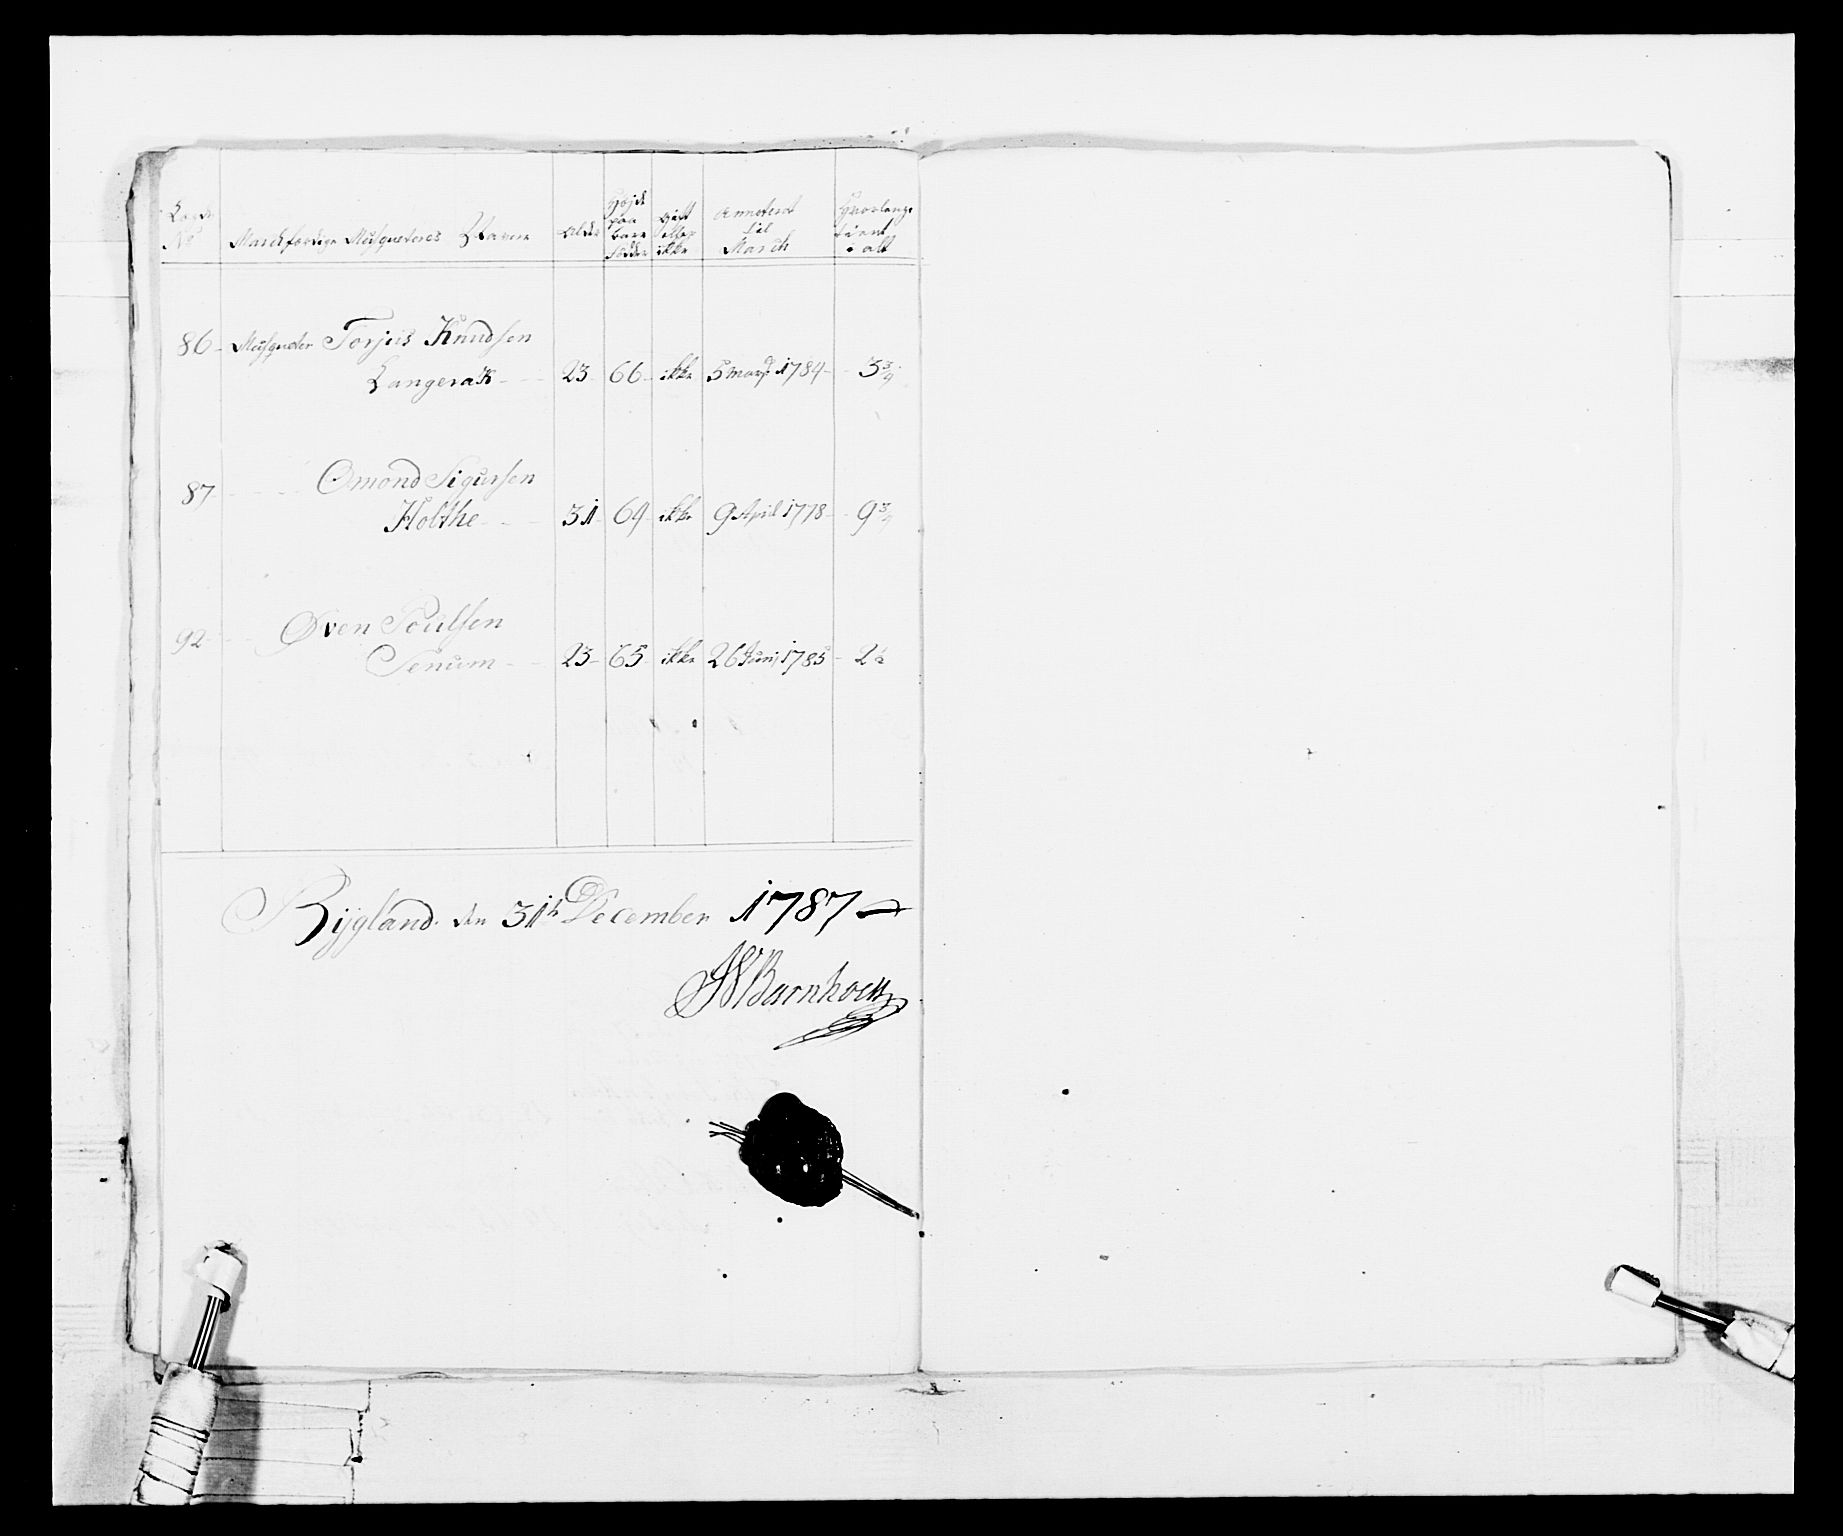 Lægds No
Marschfærdige Musqueterers Navne
Alder
Højde paa bare Fødder
Gift eller ikke
Annoteret til March
Hvorlenge tient i alt
86 Musqueter Torjuis Knudsen
Langerak 23 66 ikke 5 Marß 1784 3 3/4
87 Omond Sigursen
Holthe 31 64 ikke 9 April 1778 9 3/4
92 Øven Poulsen
Senum 23 65 ikke 26 Junj 1785 2 1/2
Bijgland den 31te December 1787